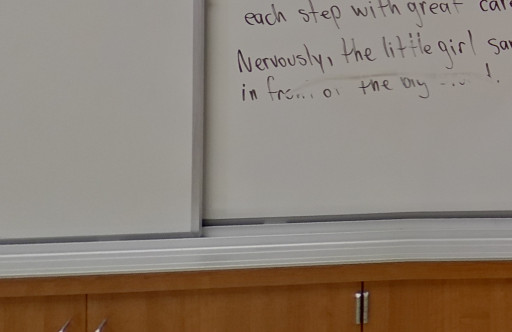 each step with great
Nervously, the little girl
in the big